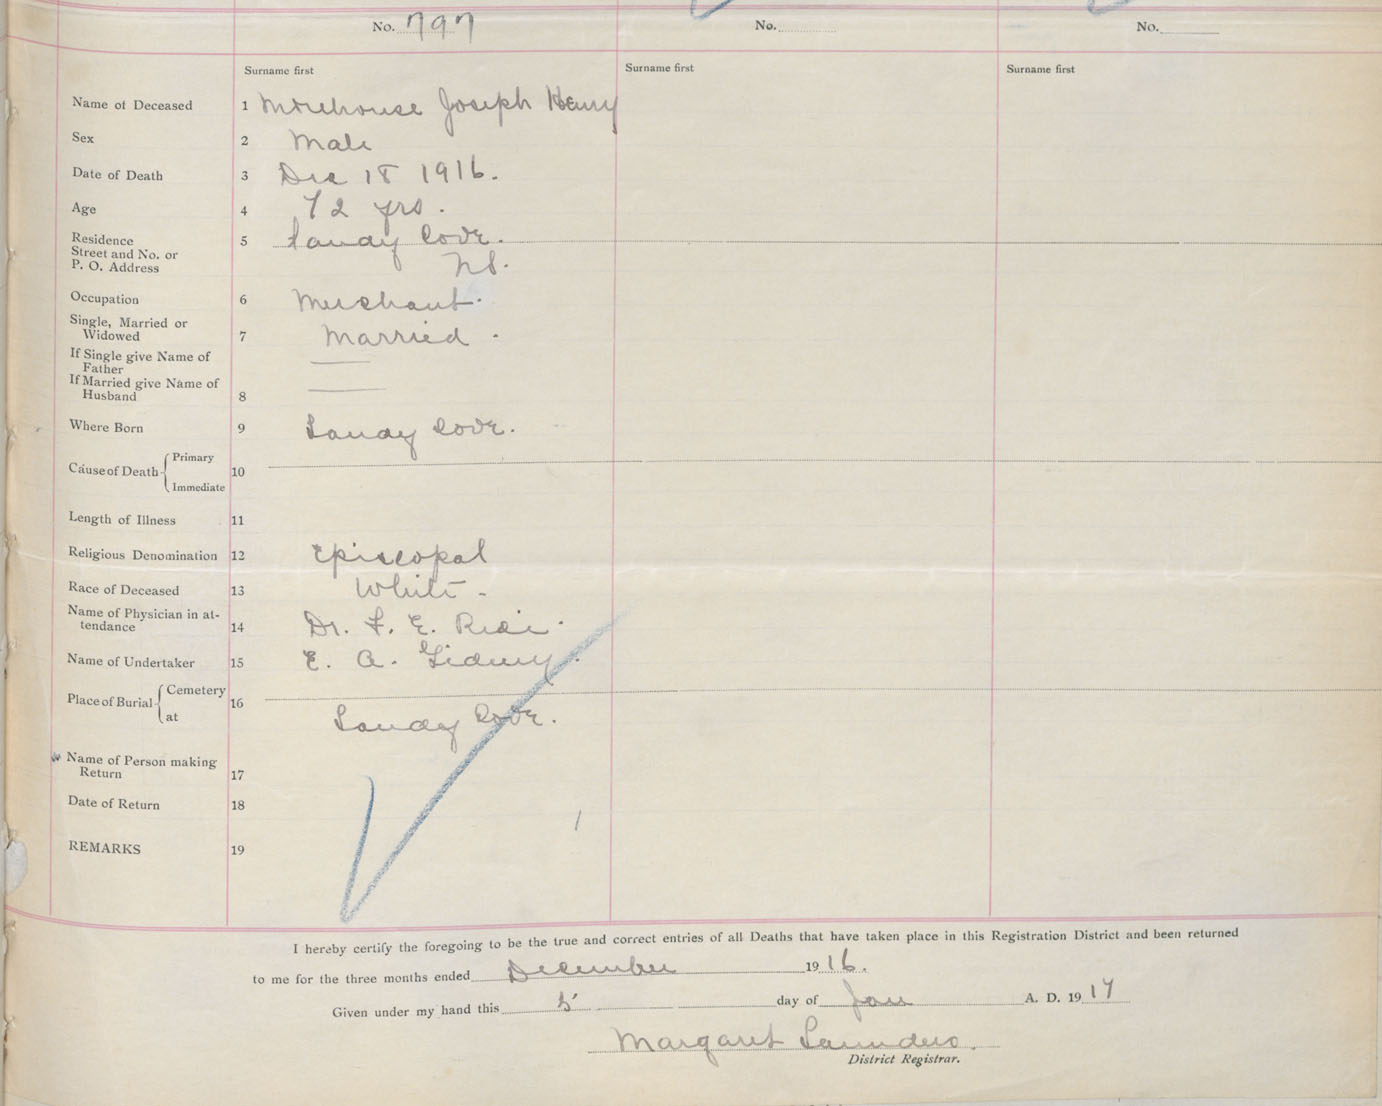 No. 797 No. No.
Surname first Surname first Surname first
Name of Deceased 1 Morehouse Joseph Henry
Sex 2 Male
Date of Death 3 Dec 18 1916.
Age 4 72 yrs.
Residence 5 Sandy Cove.
Street and No. or
P. O. Address N.S.
Occupation 6 Merchant.
Single, Married or
Widowed 7 Married.
If Single give Name of
Father
If Married give Name of
Husband 8
Where Born 9 Sandy Cove.
Cause of Death Primary
10
Immediate
Length of Illness 11
Religious Denomination 12 Episcopal
Race of Deceased 13 White -
Name of Physician in at-
tendance 14 Dr. F. E. Rice.
Name of Undertaker 15 E. A. Gidney.
Place of Burial Cemetery 16
at Sandy Cove.
Name of Person making
Return 17
Date of Return 18
REMARKS 19
I hereby certify the foregoing to be the true and correct entries of all Deaths that have taken place in this Registration District and been returned
to me for the three months ended December 1916.
Given under my hand this 5 day of Jan A. D. 1917
Margaret Saunders.
District Registrar.